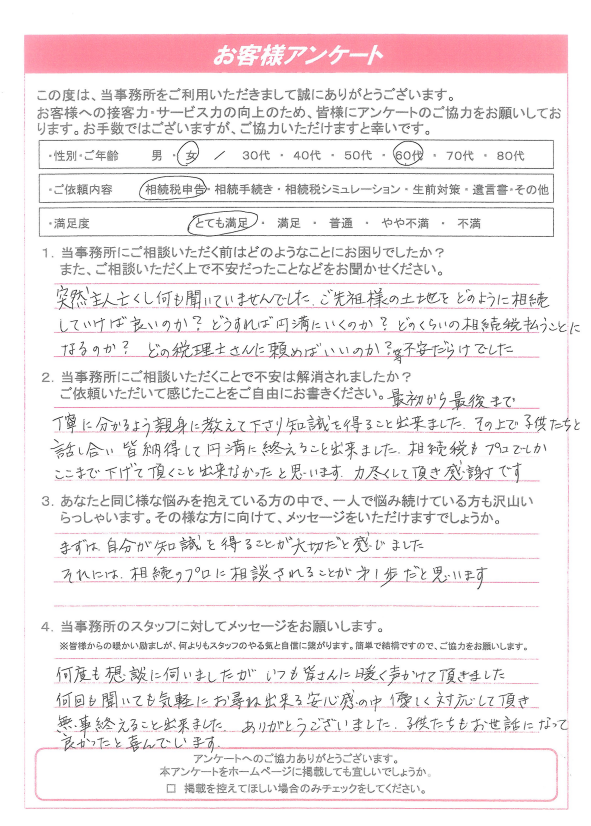 お客様アンケート
この度は、当事務所をご利用いただきまして誠にありがとうございます。
お客様への接客力・サービス力の向上のため、皆様にアンケートのご協力をお願いしてお
ります。お手数ではございますが、ご協力いただけますと幸いです。
・性別・ご年齢 男 ・ 女 / 30代 ・ 40代 ・ 50代 ・ 60代 ・ 70代 ・ 80代
・ご依頼内容 相続税申告・相続手続き・相続税シミュレーション・生前対策・遺言書・その他
・満足度 とても満足 ・ 満足 ・ 普通 ・ やや不満 ・ 不満
1．当事務所にご相談いただく前はどのようなことにお困りでしたか？
また、ご相談いただく上で不安だったことなどをお聞かせください。
突然主人亡くし何も聞いていませんでした。ご先祖様の土地をどのように相続
していけば良いのか？どうすれば円満にいくのか？どのくらいの相続税払うことに
なるのか？ どの税理士さんに頼めばいいのか？等不安だらけでした
2．当事務所にご相談いただくことで不安は解消されましたか？
ご依頼いただいて感じたことをご自由にお書きください。最初から最後まで
丁寧に分かるよう親身に教えて下さり知識を得ること出来ました。その上で子供たちと
話し合い 皆納得して円満に終えること出来ました。相続税もプロでしか
ここまで下げて頂くこと出来なかったと思います。力尽くして頂き感謝です
3．あなたと同じ様な悩みを抱えている方の中で、一人で悩み続けている方も沢山い
らっしゃいます。その様な方に向けて、メッセージをいただけますでしょうか。
まずは自分が知識を得ることが大切だと感じました
それには、相続のプロに相談されることが第1歩だと思います
4．当事務所のスタッフに対してメッセージをお願いします。
※皆様からの暖かい励ましが、何よりもスタッフのやる気と自信に繋がります。簡単で結構ですので、ご協力をお願いします。
何度も想談に伺いましたが いつも皆さんに暖く声かけて頂きました
何回も聞いても気軽にお尋ね出来る安心感の中 優しく対応して頂き
無事終えること出来ました。 ありがとうございました。子供たちもお世話になって
良かったと喜んでいます。
アンケートへのご協力ありがとうございます。
本アンケートをホームページに掲載しても宜しいでしょうか。
□ 掲載を控えてほしい場合のみチェックをしてください。